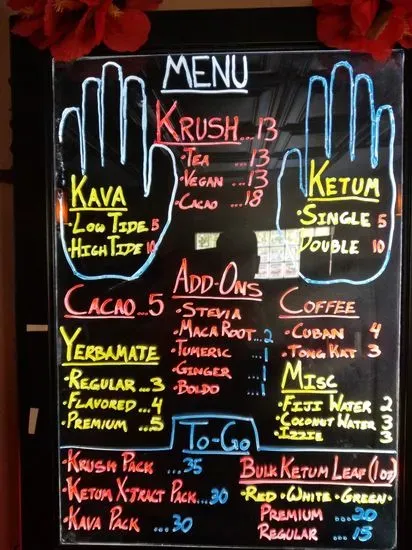 MENU
KRUSH...13
•TEA ...13
•VEGAN ...13
•CACAO ...18
KAVA
•LOW TIDE 5
•HIGH TIDE 10
KETUM
•SINGLE 5
•DOUBLE 10
CACAO...5
YERBAMATE
•REGULAR...3
•FLAVORED...4
•PREMIUM...5
ADD-ONS
•STEVIA
•MACA ROOT...2
•TUMERIC ...1
•GINGER ...1
•BOLDO ...1
COFFEE
•CUBAN 4
•TONG KAT 3
MISC
•FIJI WATER 2
•COCONUT WATER 3
•IZZIE 3
TO-GO
•KRUSH PACK ...35
•KETUM X-TRACT PACK...30
•KAVA PACK ...30
BULK KETUM LEAF (1 OZ)
•RED•WHITE•GREEN•
PREMIUM ...20
REGULAR ...15